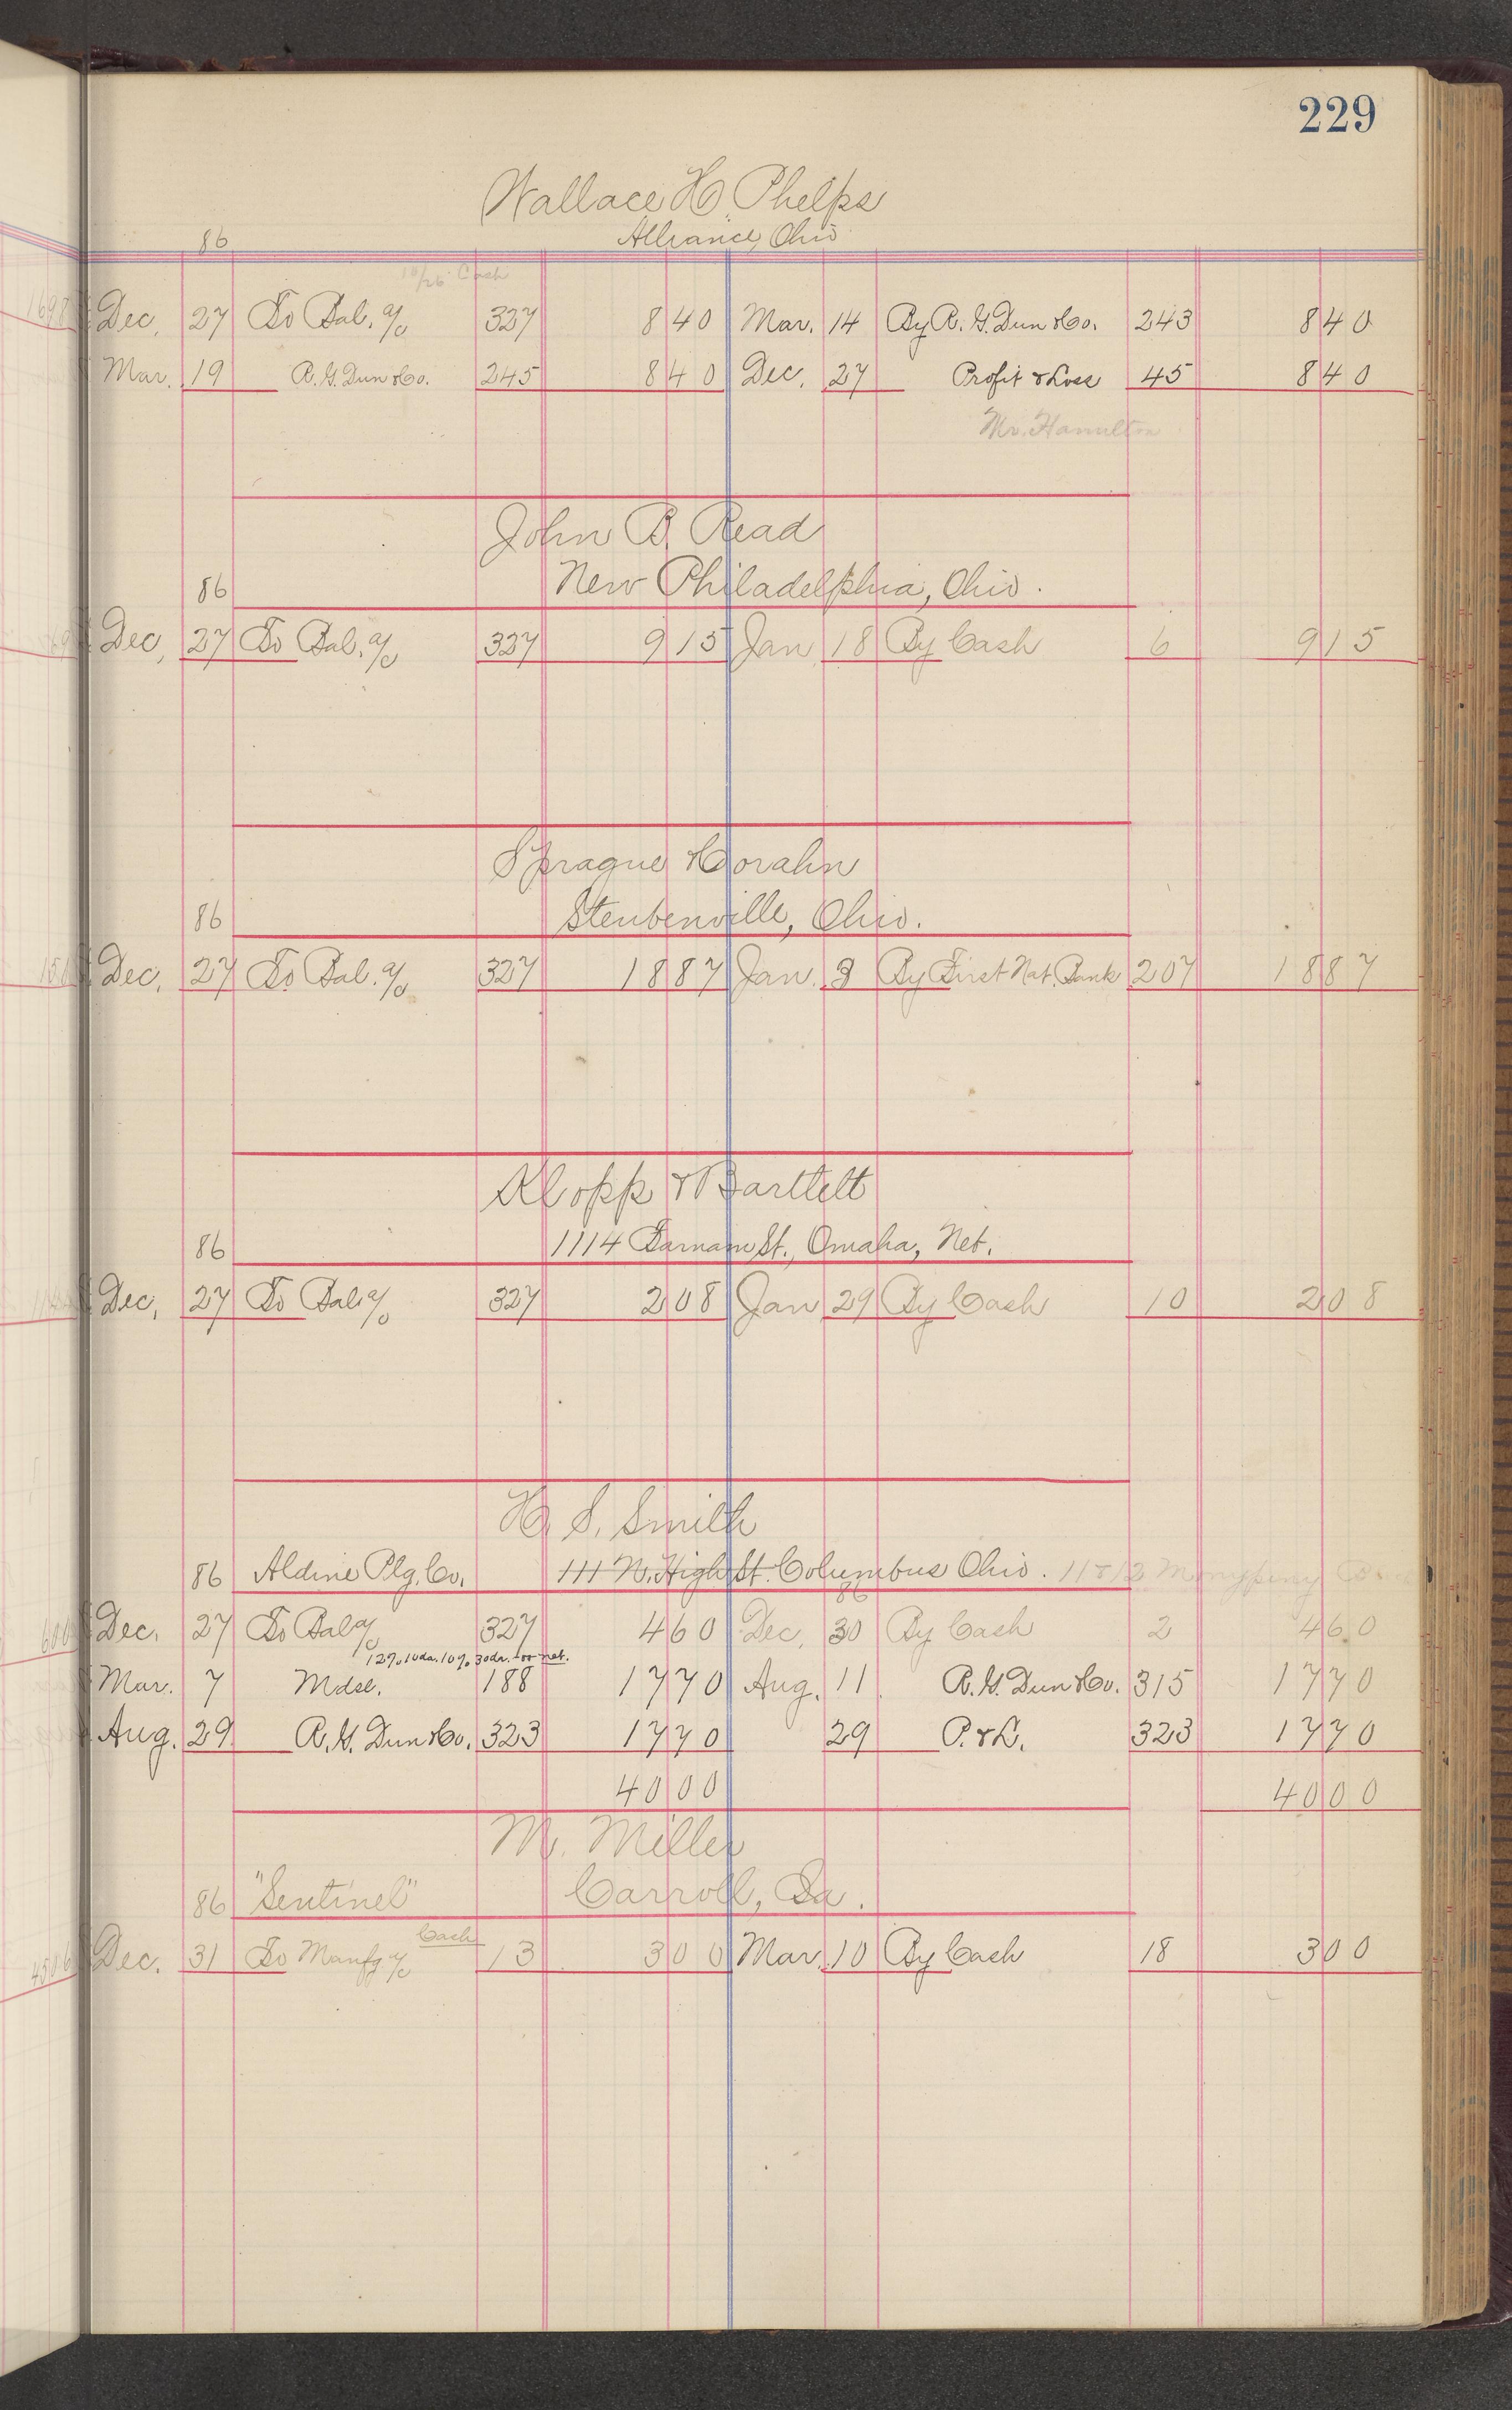 229
Wallace H. Phelps
86 Alliance, Ohio
10/26 Cash
Dec. 27 To Bal. a/c 327 8 40 Mar. 14 By R. G. Dun & Co. 243 8 40
Mar. 19 R. G. Dun & Co. 245 8 40 Dec. 27 Profit & Loss 45 8 40
Mr. Hamilton
John B. Read
86 New Philadelphia, Ohio.
Dec, 27 To Bal. a/c 327 9 15 Jan 18 By Cash 6 9 15
Sprague & Corahn
86 Steubenville, Ohio.
Dec, 27 To Bal. a/c 327 18 87 Jan. 3 By First Nat. Bank 207 18 87
Klopp & Bartlett
86 1114 Farnam St., Omaha, Neb.
Dec, 27 To Bal a/c 327 2 08 Jan 29 By Cash 10 2 08
H. S. Smith
86 Aldine Ptg. Co. 111 N. High St. Columbus Ohio. 11 & 12
86
Dec. 27 To Bal a/c 327 4 60 Dec. 30 By Cash 2 4 60
12% 10da. 10% 30da. 60 net.
Mar. 7 Mdse. 188 17 70 Aug. 11 R. G. Dun & Co. 315 17 70
Aug. 29 R. G. Dun & Co. 323 17 70 29 P. & L. 323 17 70
40 00 40 00
M. Miller
86 "Sentinel" Carroll, Ia.
Cash
Dec. 31 To Manfg a/c 13 3 00 Mar. 10 By Cash 18 3 00